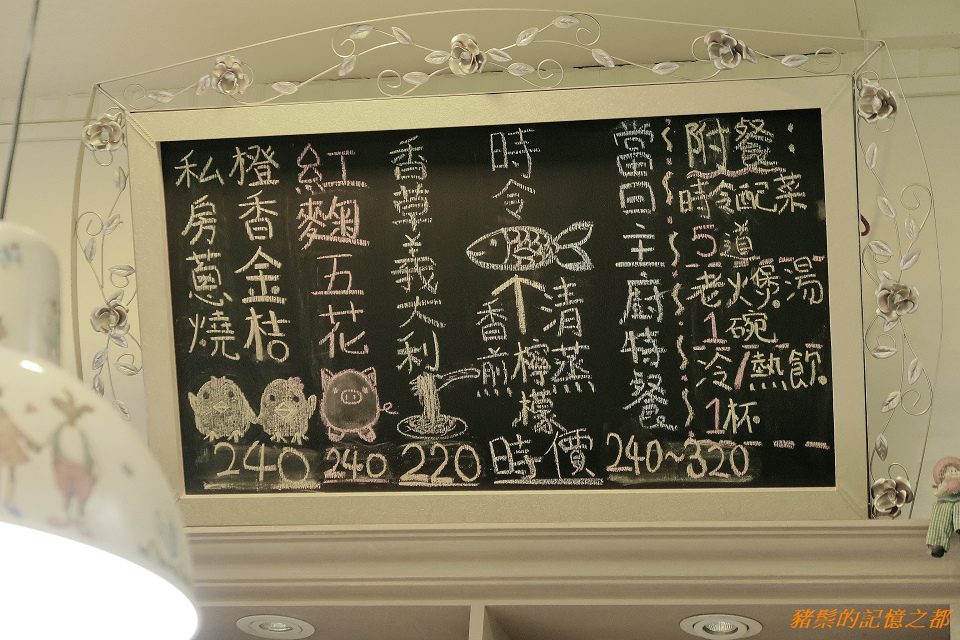 附餐:
時令配菜
5道
老火煲湯
1碗
冷/熱飲
1杯
當日主廚特餐
240~320
時令
清蒸
檸檬
香煎
時價
香草義大利
220
紅麴五花
240
橙香金桔
私房蔥燒
240
豬鬃的記憶之都